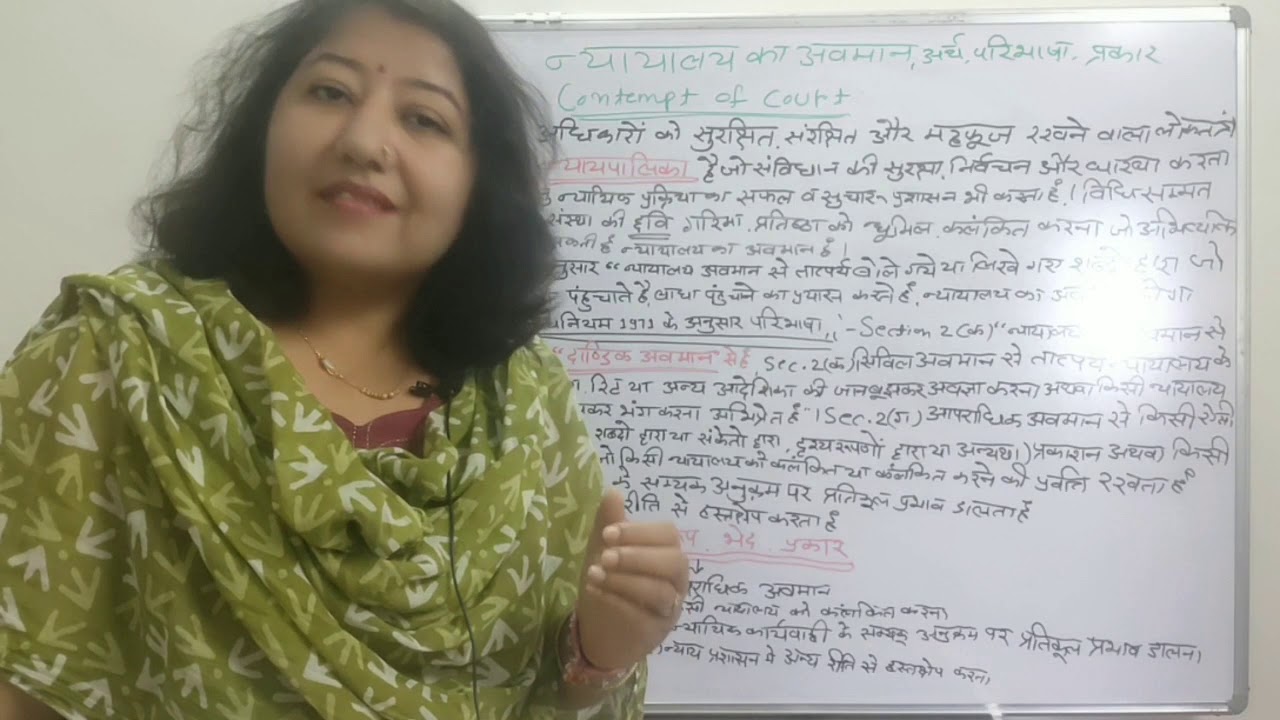 न्यायालय का अवमान, अर्थ, परिभाषा, प्रकार
Contempt of Court
अधिकारों को सुरक्षित, संरक्षित और महफूज रखने वाला लोकतंत्र
न्यायपालिका है जो संविधान की सुरक्षा, निर्वचन और व्याख्या करता
न्यायिक प्रक्रिया का सफल व सुचारू प्रशासन भी करता है। विधि सम्मत
संस्था की छवि गरिमा, प्रतिष्ठा को धूमिल, कलंकित करना जो अभिव्यक्ति
न्यायालय का अवमान है।
नुसार "न्यायालय अवमान से तात्पर्य बोले गये या लिखे गए शब्दों द्वारा जो
पंहुचाते है, बाधा पंहुचाने का प्रयास करते है, न्यायालय का
नियम 1971 के अनुसार परिभाषा, :- Section 2(क) "न्यायालय मान से
"दाण्डिक अवमान" से है, Sec. 2(क) सिविल अवमान से तात्पर्य- न्यायालय के
रिट या अन्य आदेशिका की जानबूझकर अवज्ञा करना अथवा किसी न्यायालय
कर भंग करना अभिप्रेत है"। Sec. 2(ग) आपराधिक अवमान से किसी ऐसी
शब्दों द्वारा या संकेतो द्वारा, दृश्यरूपणों द्वारा या अन्यथा) प्रकाशन अथवा किसी
किसी न्यायालय को कलंकित या कलंकित करने की प्रवृत्ति रखता है
के सम्यक अनुक्रम पर प्रतिकूल प्रभाव डालता है
रीति से हस्तक्षेप करता है
रूप, भेद, प्रकार
राधिक अवमान
सी न्यायालय को कलंकित करना
न्यायिक कार्यवाही के सम्यक् अनुक्रम पर प्रतिकूल प्रभाव डालना।
न्याय प्रशासन मे अन्य रीति से हस्तक्षेप करना।